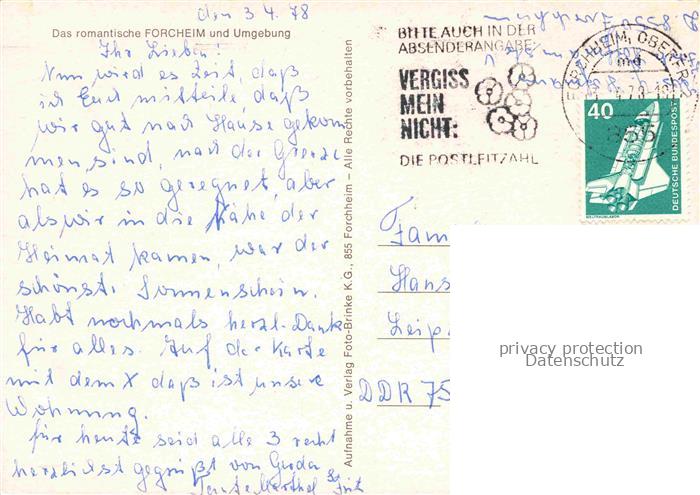 den 3 4. 78
Das romantische FORCHHEIM und Umgebung
Ihr Lieben!
Nun wird es Zeit, daß
ich Euch mitteile, daß
wir gut nach Hause gekom
men, sind, nach der Grenze
hat es so geregnet, aber
als wir in die Nähe der
Heimat kamen, war der
schönste Sonnenschein.
Habt nochmals herzl. Dank
für alles. Auf der Karte
mit dem X daß ist unsere
Wohnung.
für heute seid alle 3 recht
herzlichst gegrüßt von
Tante
Aufnahme u. Verlag Foto-Brinke K.G., 855 Forchheim – Alle Rechte vorbehalten
BITTE AUCH IN DER
ABSENDERANGABE:
VERGISS
MEIN
NICHT:
DIE POSTLEITZAHL
FORCHHEIM, OBERFR
md
855
40
DEUTSCHE BUNDESPOST
WELTRAUMLABOR
Fam
Hans
Leip
DDR 75
privacy protection
Datenschutz